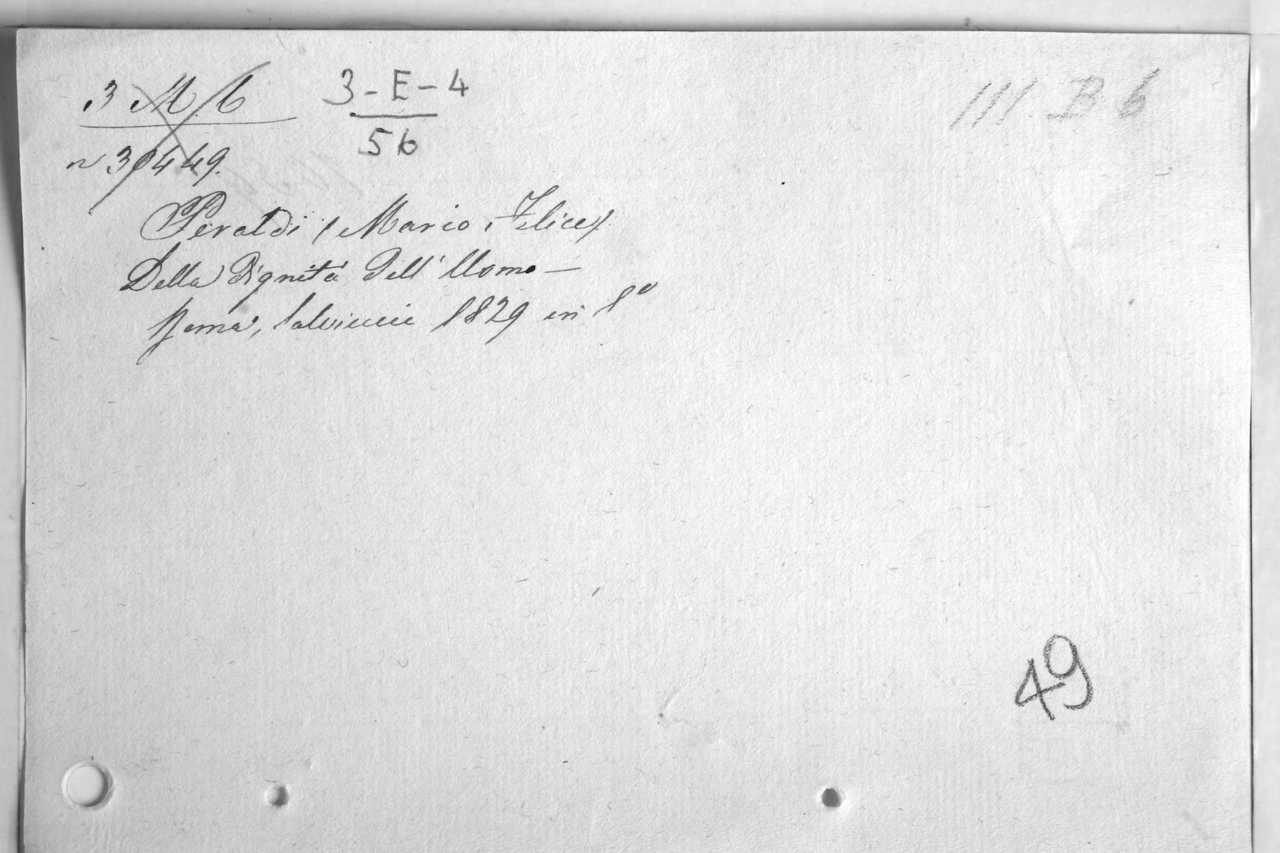 3 M. 6
3-E-4
III. B 6
56
n 30449.
Peraldi (Mario Felice)
Della Dignità dell'Uomo —
Roma, Salviucci 1829 in 8º
49